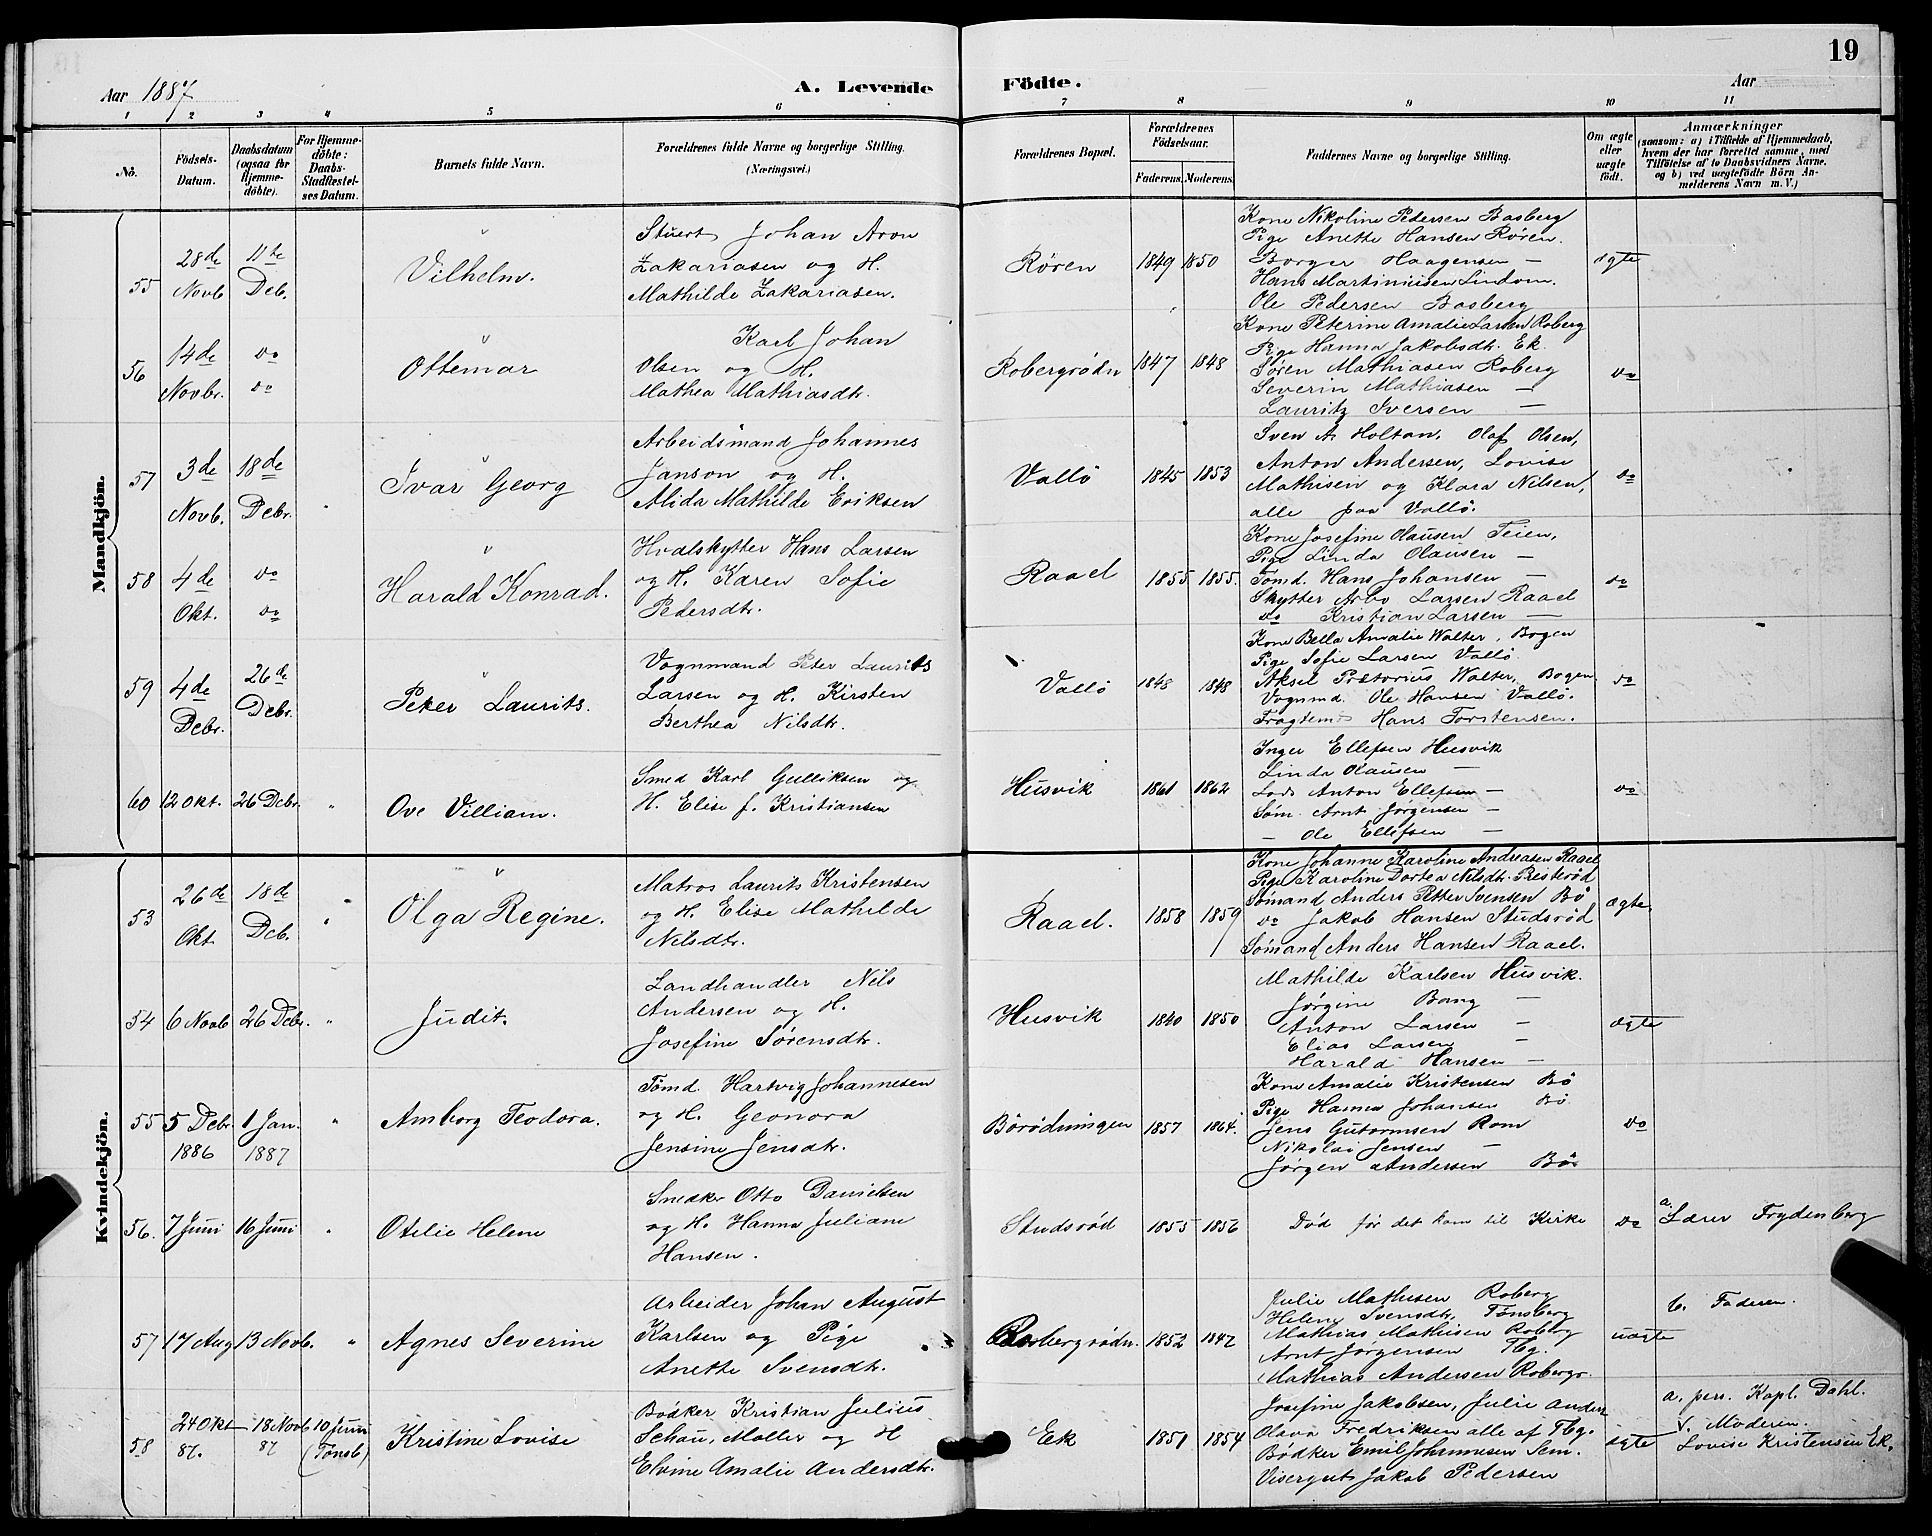 19
Aar 1887 A. Levende Födte. Aar
1 2 3 4 5 6 7 8 9 10 11
No. Födsels-Datum. Daabsdatum (ogsaa for Hjemmedöbte). For Hjemmedöbte: Daabs-Stadfæstelses Datum. Barnets fulde Navn. Forældrenes fulde Navne og borgerlige Stilling. (Næringsvei.) Forældrenes Bopæl. Forældrenes Födselsaar. Faderens. Moderens. Faddernes Navne og borgerlige Stilling. Om ægte eller uægte födt. Anmærkninger (saasom: a) i Tilfælde af Hjemmedaab, hvem der har forrettet samme, med Tilföielse af to Daabsvidners Navne, og b) ved uægtefödte Börn Anmelderens Navn m. V.)
Mandkjön.
55 28de Novb 11te Deb. Vilhelm. Stuert Johan Aron Zakariasen og H. Mathilde Zakariasen. Røren 1849 1850 ægte
Kone Nikoline Pedersen Basberg
Pige Anette Hansen Røren.
Borger Haagensen —
Hans Martiniusen Lindom.
Ole Pedersen Basberg
56 14de Novbr. do do Ottemar Karl Johan Olsen og H. Mathea Mathiasdtr. Robergrødn 1847 1848 do
Kone Peterine Amalie Larsen Roberg
Pige Hanna Jakobsdt. Ek.
Søren Mathiasen Roberg
Severin Mathiasen —
Lauritz Iversen —
57 3de Novb. 18de Debr. Ivar Georg Arbeidsmand Johannes Janson og H. Alida Mathilde Eriksen Vallö 1845 1853 do
Sven A. Holtan, Olaf Olsen,
Anton Andersen, Lovise
Mathisen og Klara Nilsen,
alle paa Vallö.
58 4de Okt. do do Harald Konrad. Hvalskytter Hans Larsen og H. Karen Sofie Pedersdtr. Raael 1855 1855. do
Kone Josefine Olausen Teien,
Pige Linda Olausen —
Tømd. Hans Johansen —
Skytter Arbo Larsen Raael
do Kristian Larsen —
59 4de Debr. 26de Debr. Peter Laurits. Vognmand Peter Laurits Larsen og H. Kirsten Berthea Nilsdtr. Vallö 1848 1848 do
Kone Bella Amalie Walter, Bogen
Pige Sofie Larsen Vallö
Aksel Prætorius Walter, Bogen
Vognmd. Ole Hansen Vallö.
Fragtem. Hans Torstensen.
60 12 Okt. 26 Debr. " Ove Villiam. Smed Karl Gulliksen og H. Elise f. Kristiansen Husvik 1861 1862 do
Inger Ellefsen Husvik
Linda Olausen —
Lods Anton Ellefsen —
Søm. Arnt Jørgensen —
— Ole Ellefsen —
Kvindekjön.
53 26de Okt 18de Deb. " Olga Regine. Matros Laurits Kristensen og H. Elise Mathilde Nilsdtr. Raael. 1858 1859 ægte
Kone Johanne Karoline Andreasen Raael
Pige Karoline Dortea Nilsdtr. Bisterød
Sømand Anders Petter Svensen Bö
do Jakob Hansen Studsrød
Sømand Anders Hansen Raael.
54 6 Novb 26 Debr. " Judit. Landhandler Nils Andersen og H. Josefine Sørensdtr. Husvik 1840 1850 ægte
Mathilde Karlsen Husvik.
Jørgine Bang —
Anton Larsen —
Elias Larsen —
Harald Hansen —
55 5 Debr. 1886 1 Jan. 1887 " Amborg Teodora. Tømd. Hartvig Johannesen og H. Geonora Jensine Jensdtr. Börödningen 1857 1864. do
Kone Amalie Kristensen Bö
Pige Hanna Johansen Bö
Jens Gutormsen Rom
Nikolai Jensen —
Jörgen Andersen Bö
56. 7 Juni 16 Juni " Otilie Helene Snedker Otto Danielsen og H. Hanna Juliane Hansen. Studsrød 1855 1856 Död för det kom til Kirke do a. Lærer Frydenberg
57 17 Aug 13 Novb. " Agnes Severine Arbeider Johan August Karlsen og Pige Anette Svensdtr. Robergrødn. 1852 1847 uægte b. Faderen.
Julie Mathisen Roberg
Helene Svensdtr, Tønsberg
Mathias Mathisen Roberg
Arnt Jørgensen Tbg.
Mathias Andersen Robergr.
58 24 Okt 87. 18 Novb 87 10 Juni (Tønsb) Kristine Lovise Bødker Kristian Julius Schau, Møller og H Elvine Amalie Andersdtr. Ek 1851 1854 ægte
Josefine Jakobsen, Julie Anders
Olava Fredriksen alle af Tbg.
Bødker Emil Johannesen Sem.
Visergut Jakob Pedersen
a. pers. Kapl. Dahl.
v. Moderen.
Lovise Kristensen Ek.